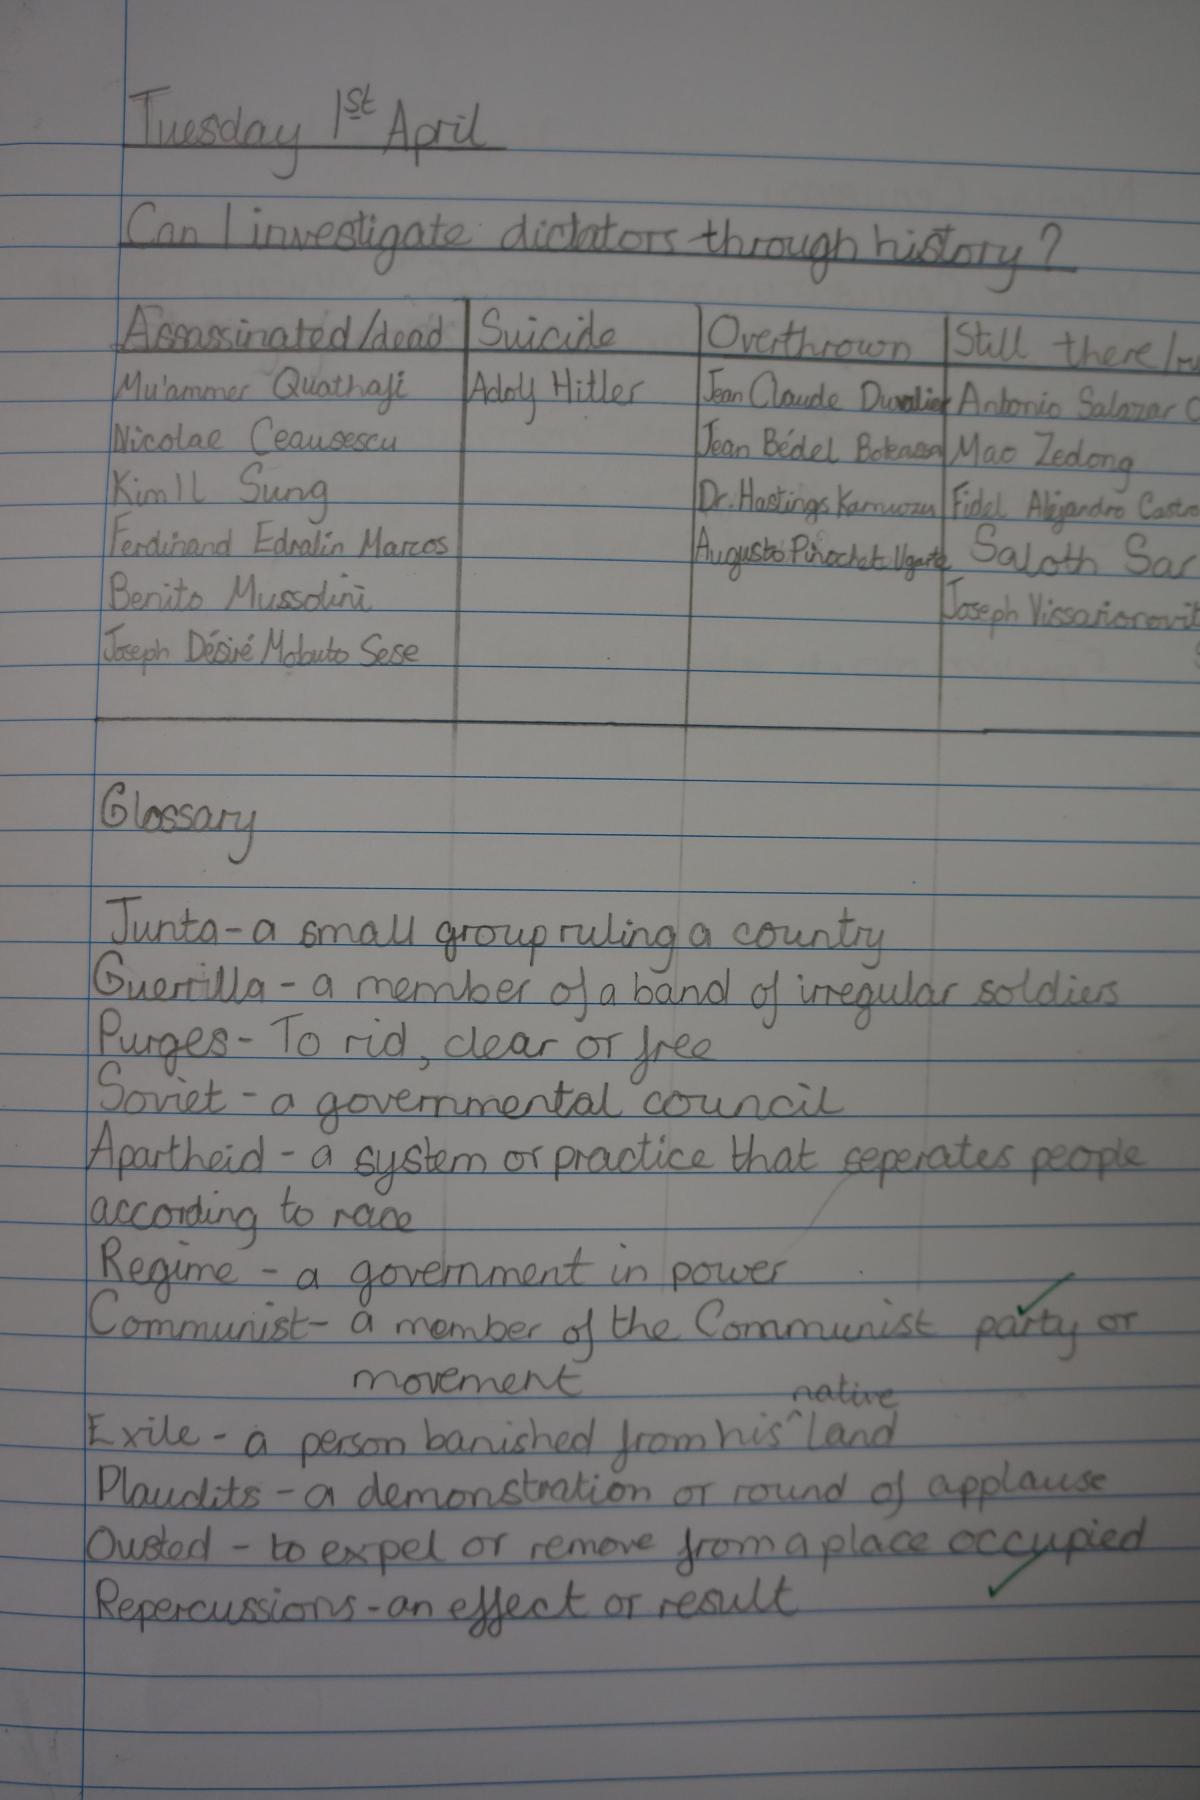 Tuesday 1st April
Can I investigate dictators through history?
Assassinated/dead Suicide Overthrown Still there/
Mu'ammer Quathafi Adolf Hitler Jean Claude Duvalier Antonio Salazar
Nicolae Ceausescu Jean Bédel Bokassa Mao Zedong
Kim Il Sung Dr. Hastings Kamuzu Fidel Alejandro Castro
Ferdinand Edralin Marcos Augusto Pinochet Ugarte Saloth Sar
Benito Mussolini Joseph
Joseph Désiré Mobuto Sese
Glossary
Junta - a small group ruling a country
Guerrilla - a member of a band of irregular soldiers
Purges - To rid, clear or free
Soviet - a governmental council
Apartheid - a system or practice that seperates people
according to race
Regime - a government in power
Communist - a member of the Communist party or
movement
native
Exile - a person banished from his ^ land
Plaudits - a demonstration or round of applause
Ousted - to expel or remove from a place occupied
Repercussions - an effect or result